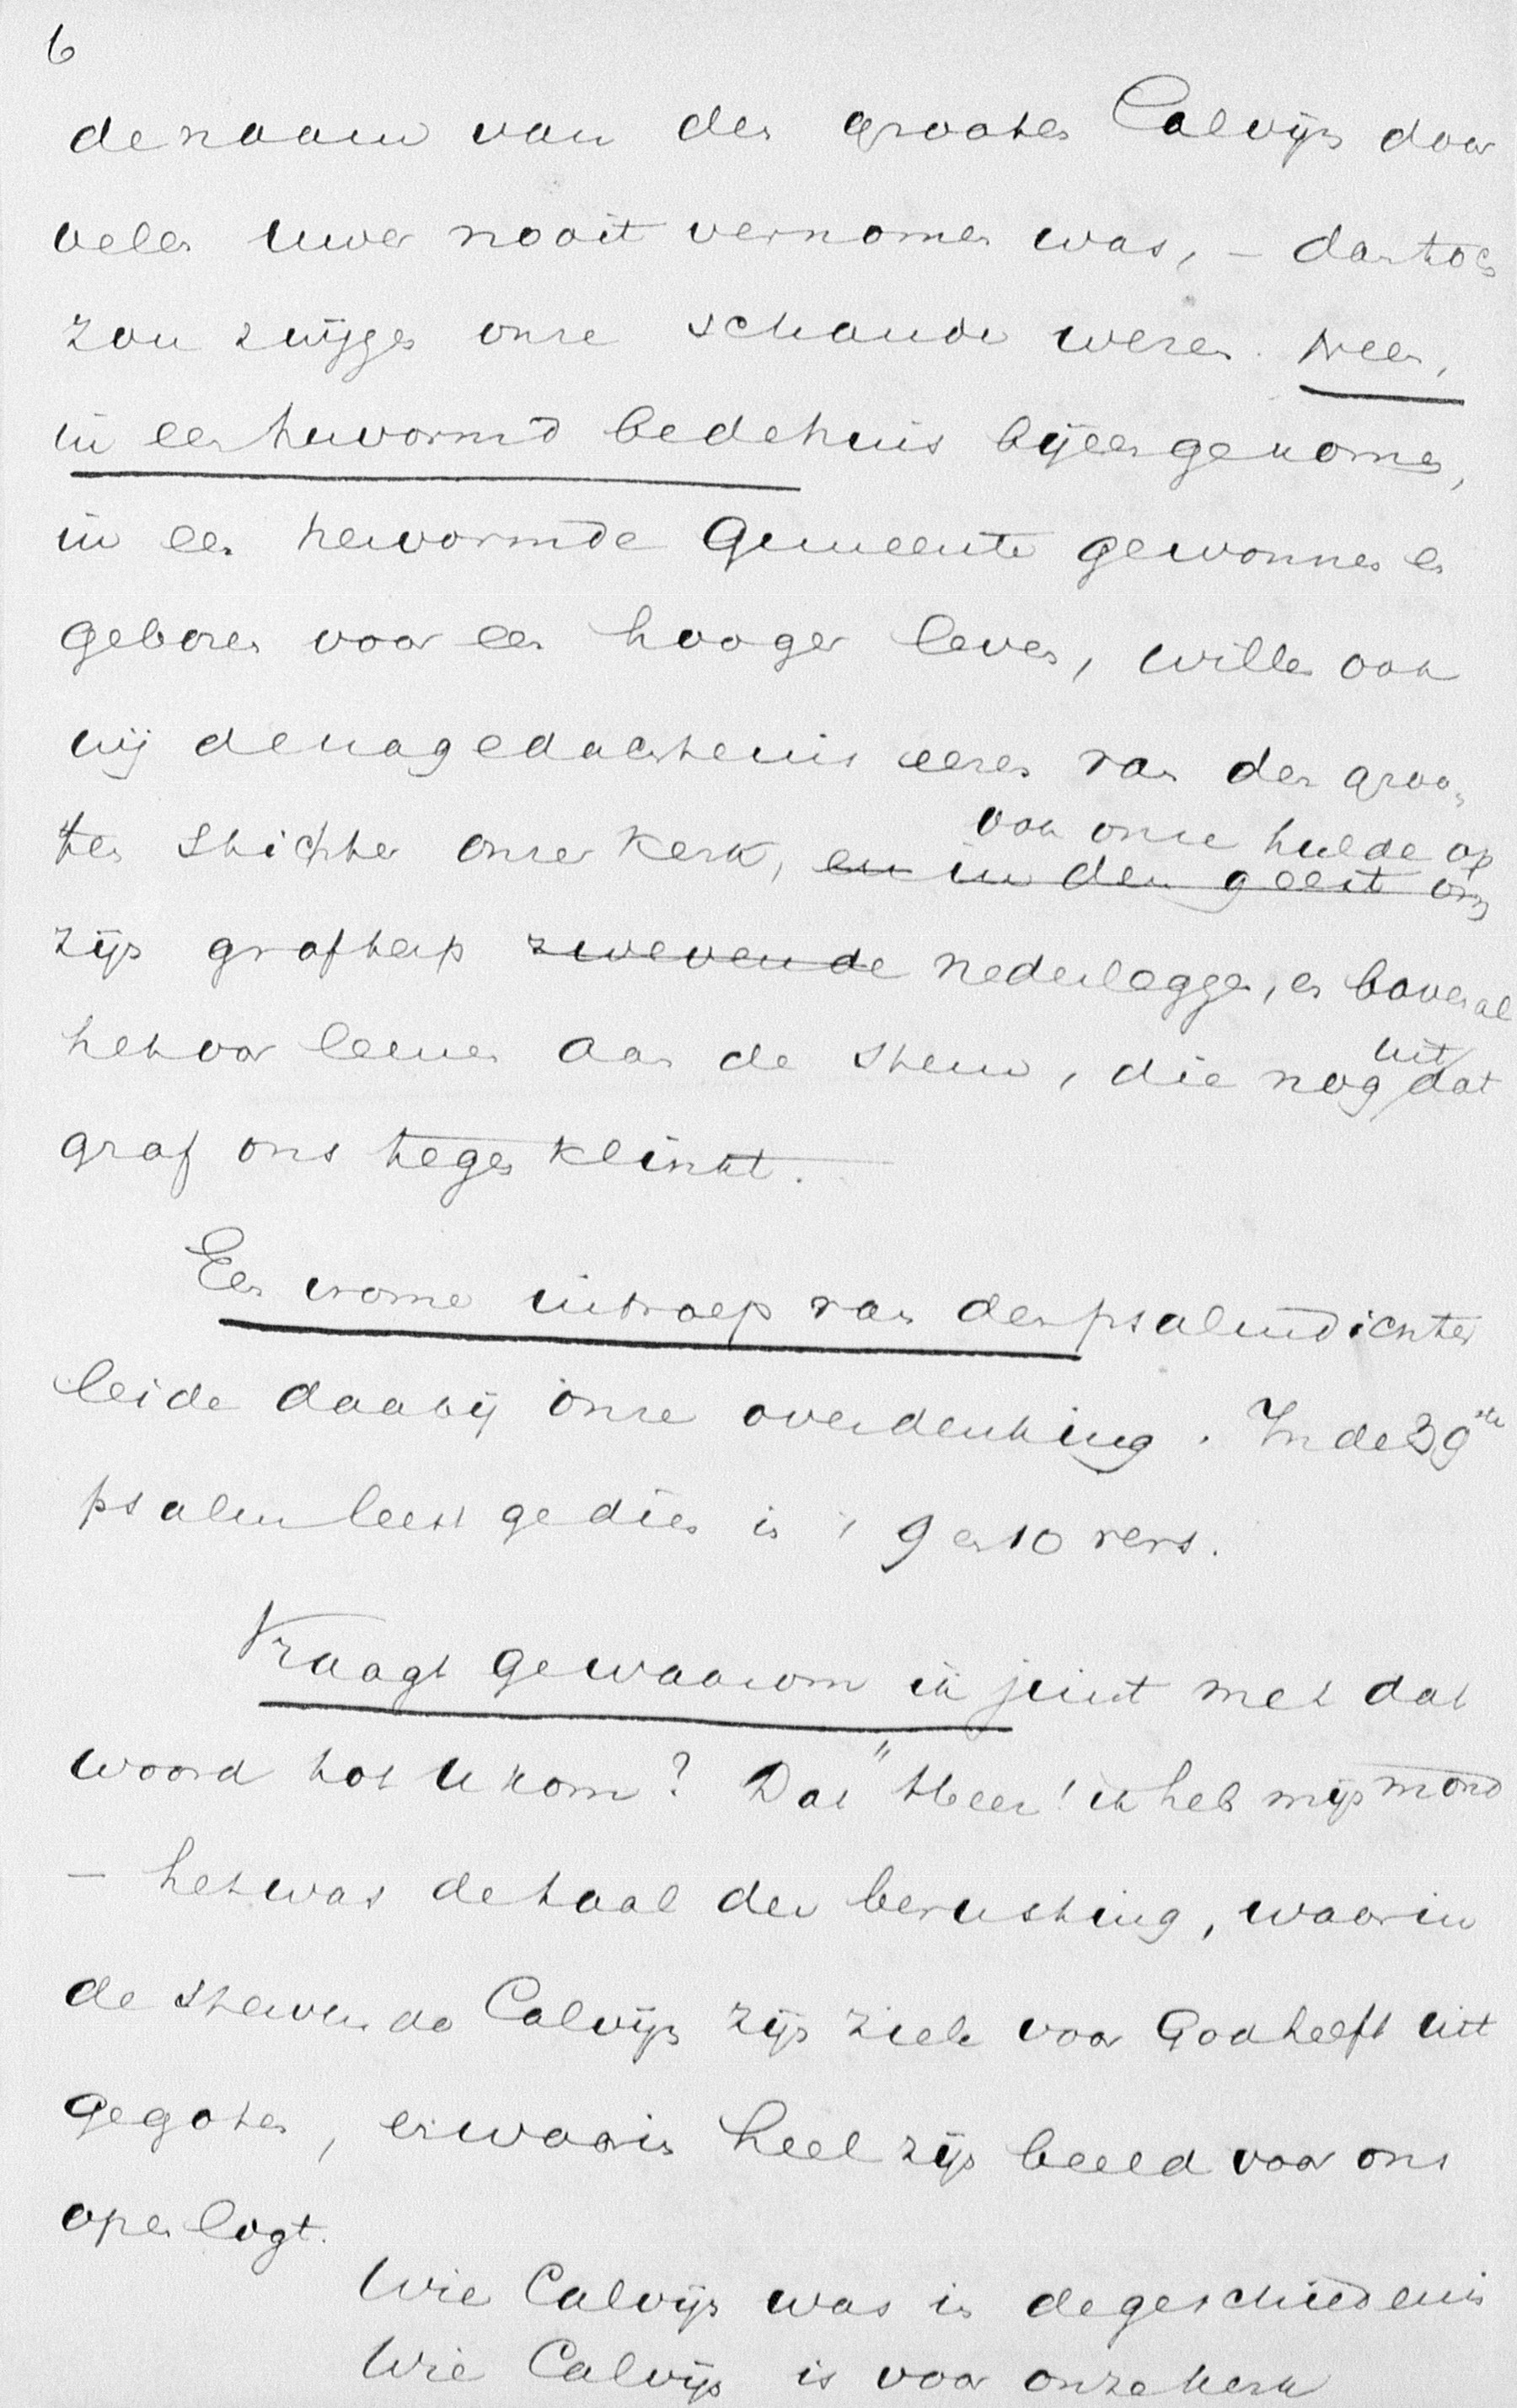 6
de naam van den grooten Calvijn door
velen uwer nooit vernomen was, – dan toch
zou zwijgen onze schande wezen. Neen,
in een hervormd bedehuis bijeengekomen,
in een hervormde Gemeente gewonnen en
geboren voor een hooger leven, willen ook
wij de nagedachtenis eeren van den groo-
ten Stichter onzer Kerk, en in den geest om
ook onze hulde op
zijn grafterp zwevende nederleggen, en bovenal
het oor leenen aan de stem, die nog uit dat
graf ons tegen klinkt.
Een vrome uitroep van den psalmdichter
leide daarbij onze overdenking. In de 39ste
psalm leest ge dien in 't 9 en 10 vers.
Vraagt ge waarom ik juist met dat
woord tot U kom? Dat "Heer! ik heb mijn mond
– het was de taal der berusting, waarin
de stervende Calvijn zijn ziele voor God heeft uit
gegoten, en waarin heel zijn beeld voor ons
open ligt.
Wie Calvijn was in de geschiedenis
Wie Calvijn is voor onze kerk